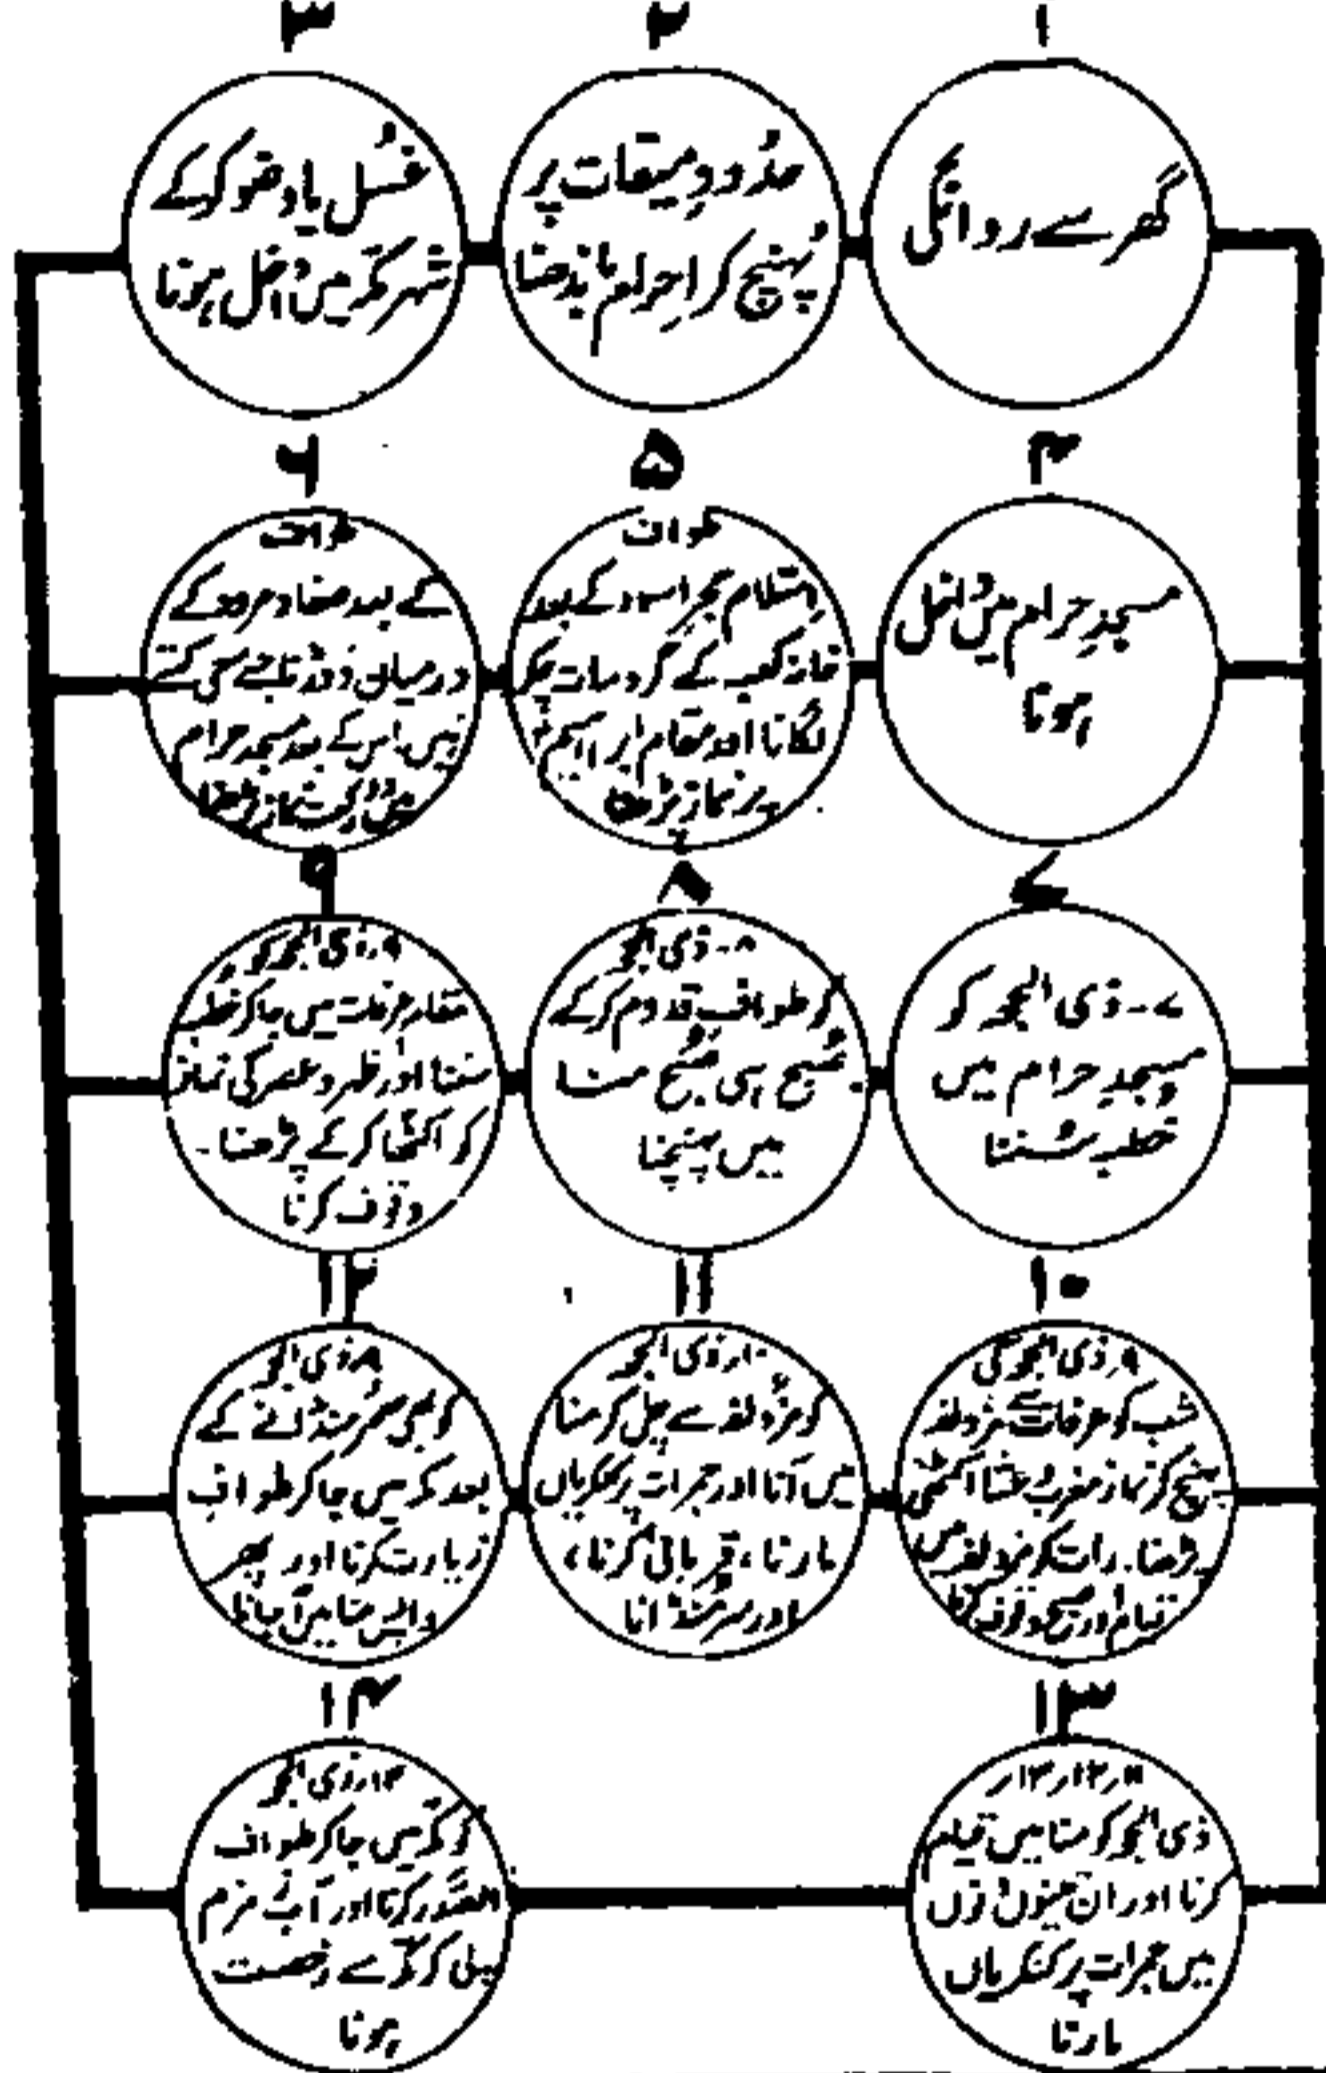 ۱
گھر سے روانگی
۲
حدُودِ میقات پر
پُہنچ کر اِحرام باندھنا
۳
غسُل یا وضو کرکے
شہر مکّہ میں داخل ہونا
۴
مسجدِ حرام میں داخل
ہونا
۵
طواف
اِستلام حجرِ اسود کے بعد
خانہ کعبہ کے گرد سات چکر
لگانا اور مقام ابراہیمؑ
پر نماز پڑھنا
۶
طواف
کے بعد صفا و مروہ کے
درمیان دوڑنا جسے سعی کہتے
ہیں اس کے بعد مسجد حرام
میں دو رکعت نماز پڑھنا
۷
۷۔ ذی الحجہ کو
مسجدِ حرام میں
خطبہ سُننا
۸
۸۔ ذی الحجہ
کو طوافِ قدوم کرکے
صُبح ہی صُبح منا
میں پہنچنا
۹
۹؍ذی الحجہ کو
مقام عرفات میں جاکر خطبہ
سننا اور ظہر و عصر کی نماز
کو اکٹھا کرکے پڑھنا۔
وقوف کرنا
۱۰
۹؍ذی الحجہ کی
شب کو عرفات سے مزدلفہ
پہنچ کر نماز مغرب عشا اکٹھی
پڑھنا۔ رات کو مزدلفہ میں
قیام اور صبح وقوف کرنا
۱۱
۱۰؍ذی الحجہ
کو مزدلفہ سے چل کر منا
میں آنا اور جمرات پر کنکریاں
مارنا، قربانی کرنا،
اور سر مُنڈانا
۱۲
ذی الحجہ
کو ہی سر منڈانے کے
بعد مکہ میں جاکر طوافِ
زیارت کرنا اور پھر
واپس منا میں آجانا
۱۳
۱۱؍۱۲؍۱۳؍
ذی الحجہ کو منا میں قیام
کرنا اور ان تینوں دنوں
میں جمرات پر کنکریاں
مارنا
۱۴
۱۳؍ذی الحجہ
کو مکّہ میں جاکر طواف
الصّدر کرنا اور آبِ زمزم
پی کر مکّہ سے رخصت
ہونا